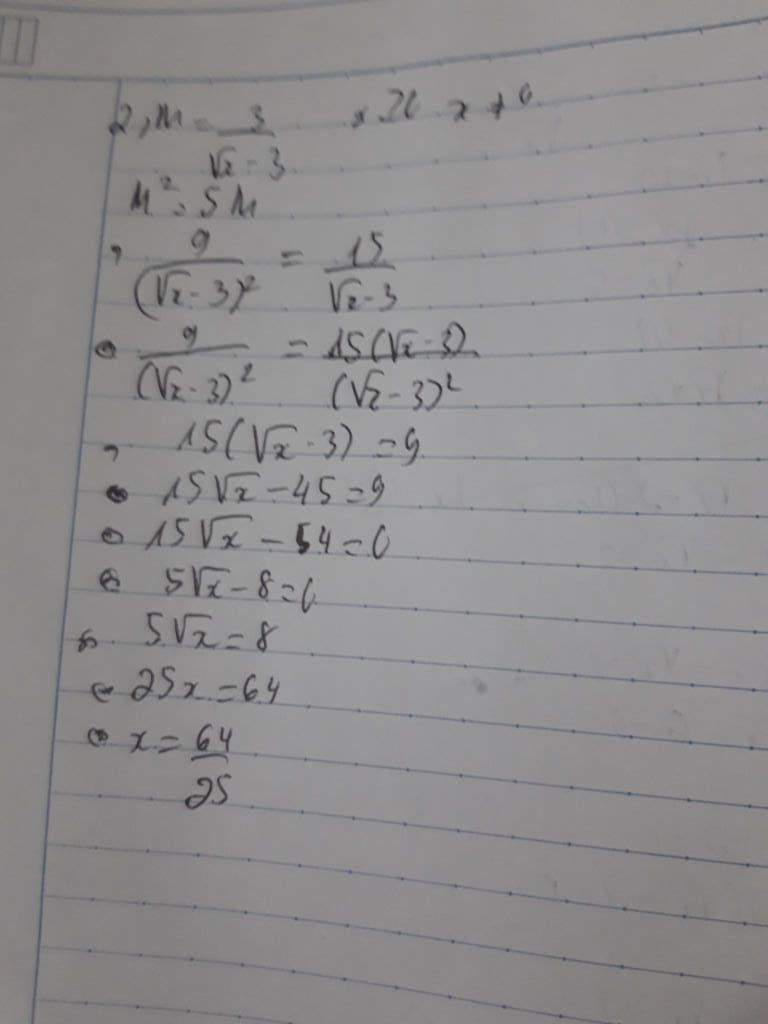 2, M = 3/(√x - 3) x ≥ 0 x ≠ 9
M² = 5M
9/(√x - 3)² = 15/(√x - 3)
⇔ 9/(√x - 3)² = 15(√x - 3)/(√x - 3)²
⇒ 15(√x - 3) = 9
⇔ 15√x - 45 = 9
⇔ 15√x - 54 = 0
⇔ 5√x - 8 = 0
⇔ 5√x = 8
⇔ 25x = 64
⇔ x = 64/25